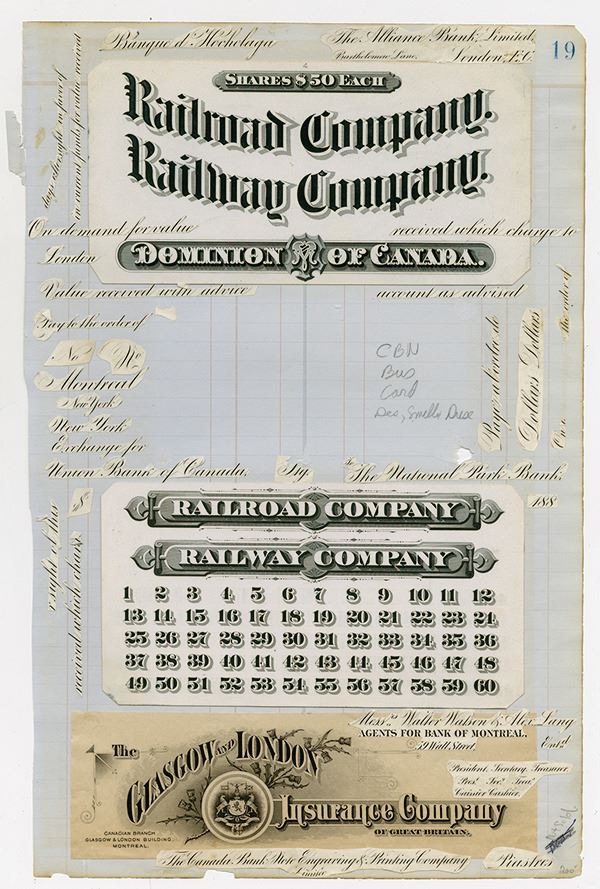 Banque d'Hochelaga
The Alliance Bank, Limited,
Bartholomew Lane,
London, E.C.
19
days after sight in favor of
in current funds for value received
SHARES $50 EACH
Railroad Company.
Railway Company.
On demand for value
received which charge to
London
DOMINION OF CANADA.
Value received with advice
account as advised
Pay to the order of
No
No
Montreal
New York
New York
Exchange for
CBN
Bus
Card
Des, Smelly Dase
Dollars Dollars
The order of
Union Bank of Canada,
Stg
To The National Park Bank,
188
RAILROAD COMPANY
RAILWAY COMPANY
1 2 3 4 5 6 7 8 9 10 11 12
13 14 15 16 17 18 19 20 21 22 23 24
25 26 27 28 29 30 31 32 33 34 35 36
37 38 39 40 41 42 43 44 45 46 47 48
49 50 51 52 53 54 55 56 57 58 59 60
sight of this
received which charge
Messrs Walter Watson & Alex. Lang
AGENTS FOR BANK OF MONTREAL.
59 Wall Street.
Ent'd
President, Secretary, Treasurer
Pres. Sec. Treas.
Cashier Cashier.
The
GLASGOW AND LONDON
Insurance Company
OF GREAT BRITAIN.
CANADIAN BRANCH
GLASGOW & LONDON BUILDING
MONTREAL.
The Canada Bank Note Engraving & Printing Company
Limited
Piastres